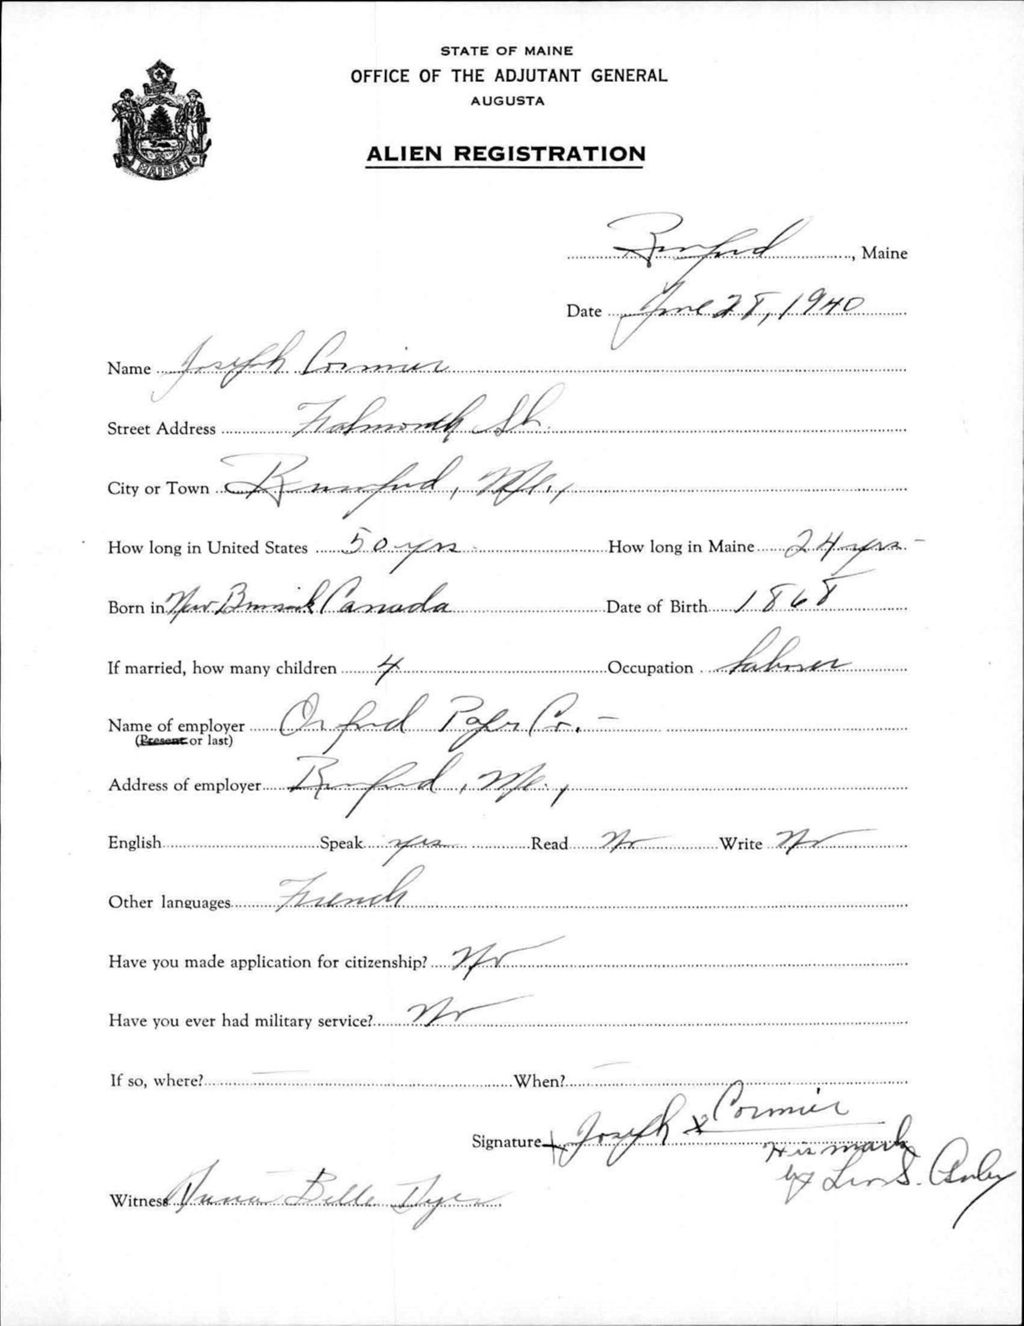 STATE OF MAINE
OFFICE OF THE ADJUTANT GENERAL
AUGUSTA
MAINE
ALIEN REGISTRATION
Rumford, Maine
Date June 28, 1940
Name Joseph Cormier
Street Address Falmouth St.
City or Town Rumford, Me.,
How long in United States 50 yrs - How long in Maine 24 yrs -
Born in New Brunswick Canada Date of Birth 1868
If married, how many children 4 Occupation Laborer
Name of employer Oxford Paper Co. -
(Present or last)
Address of employer Rumford, Me.,
English Speak yes Read No Write No
Other languages French
Have you made application for citizenship? No
Have you ever had military service? No
If so, where? — When? —
Signature Joseph x Cormier
His mark
by Leo S.
Witness Anna Belle Dyer